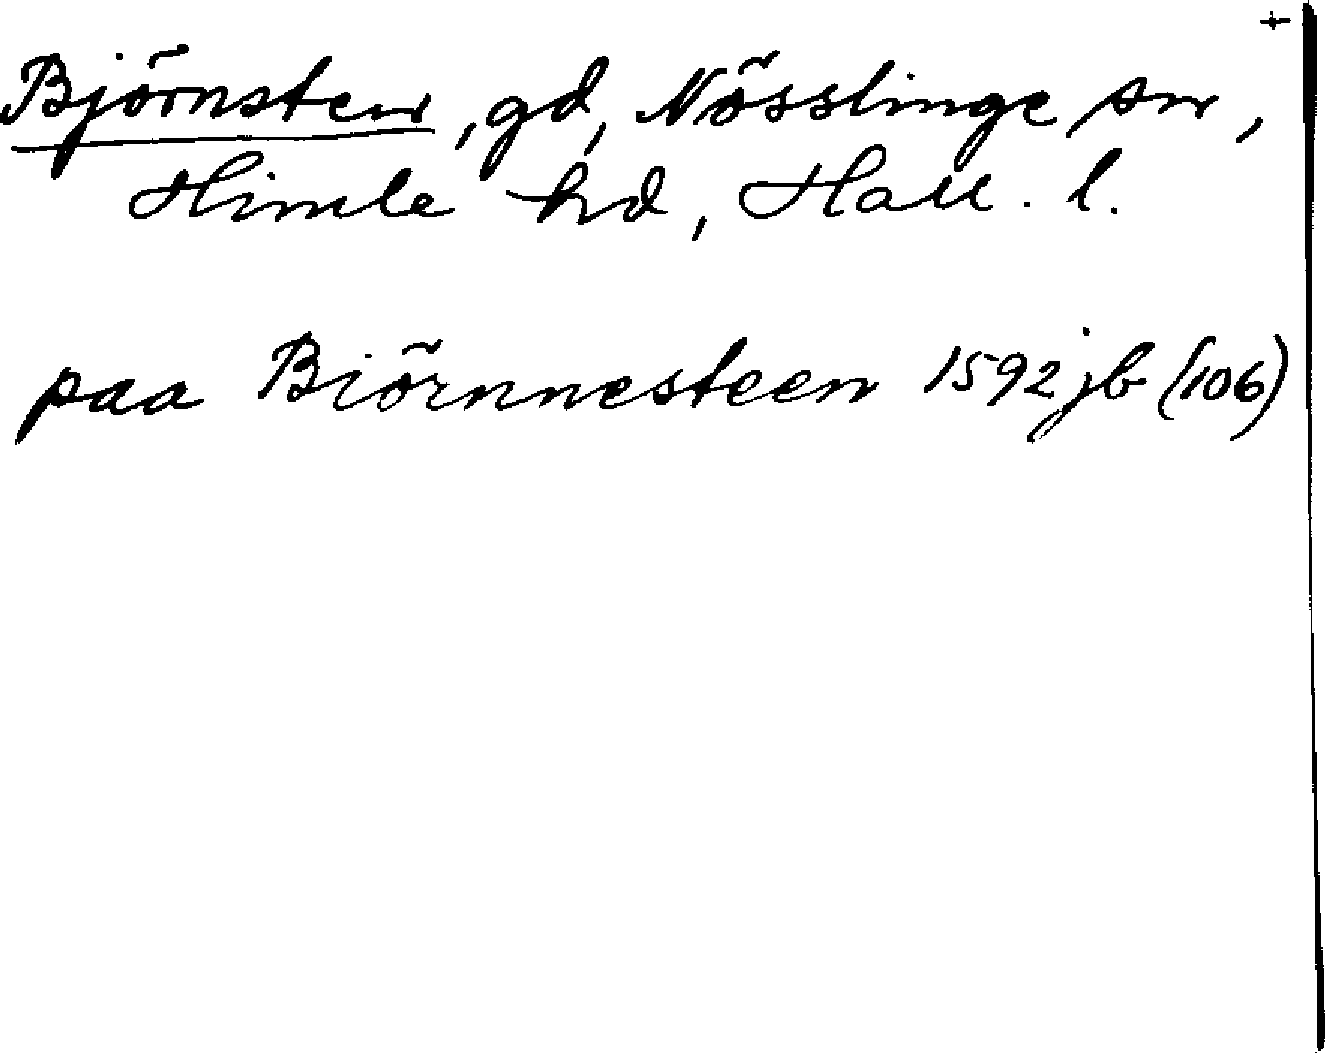 Björnsten, gd, Nösslinge sn,
Himle hd, Hall. l.
paa Biörnnesteen 1592 jb (106)